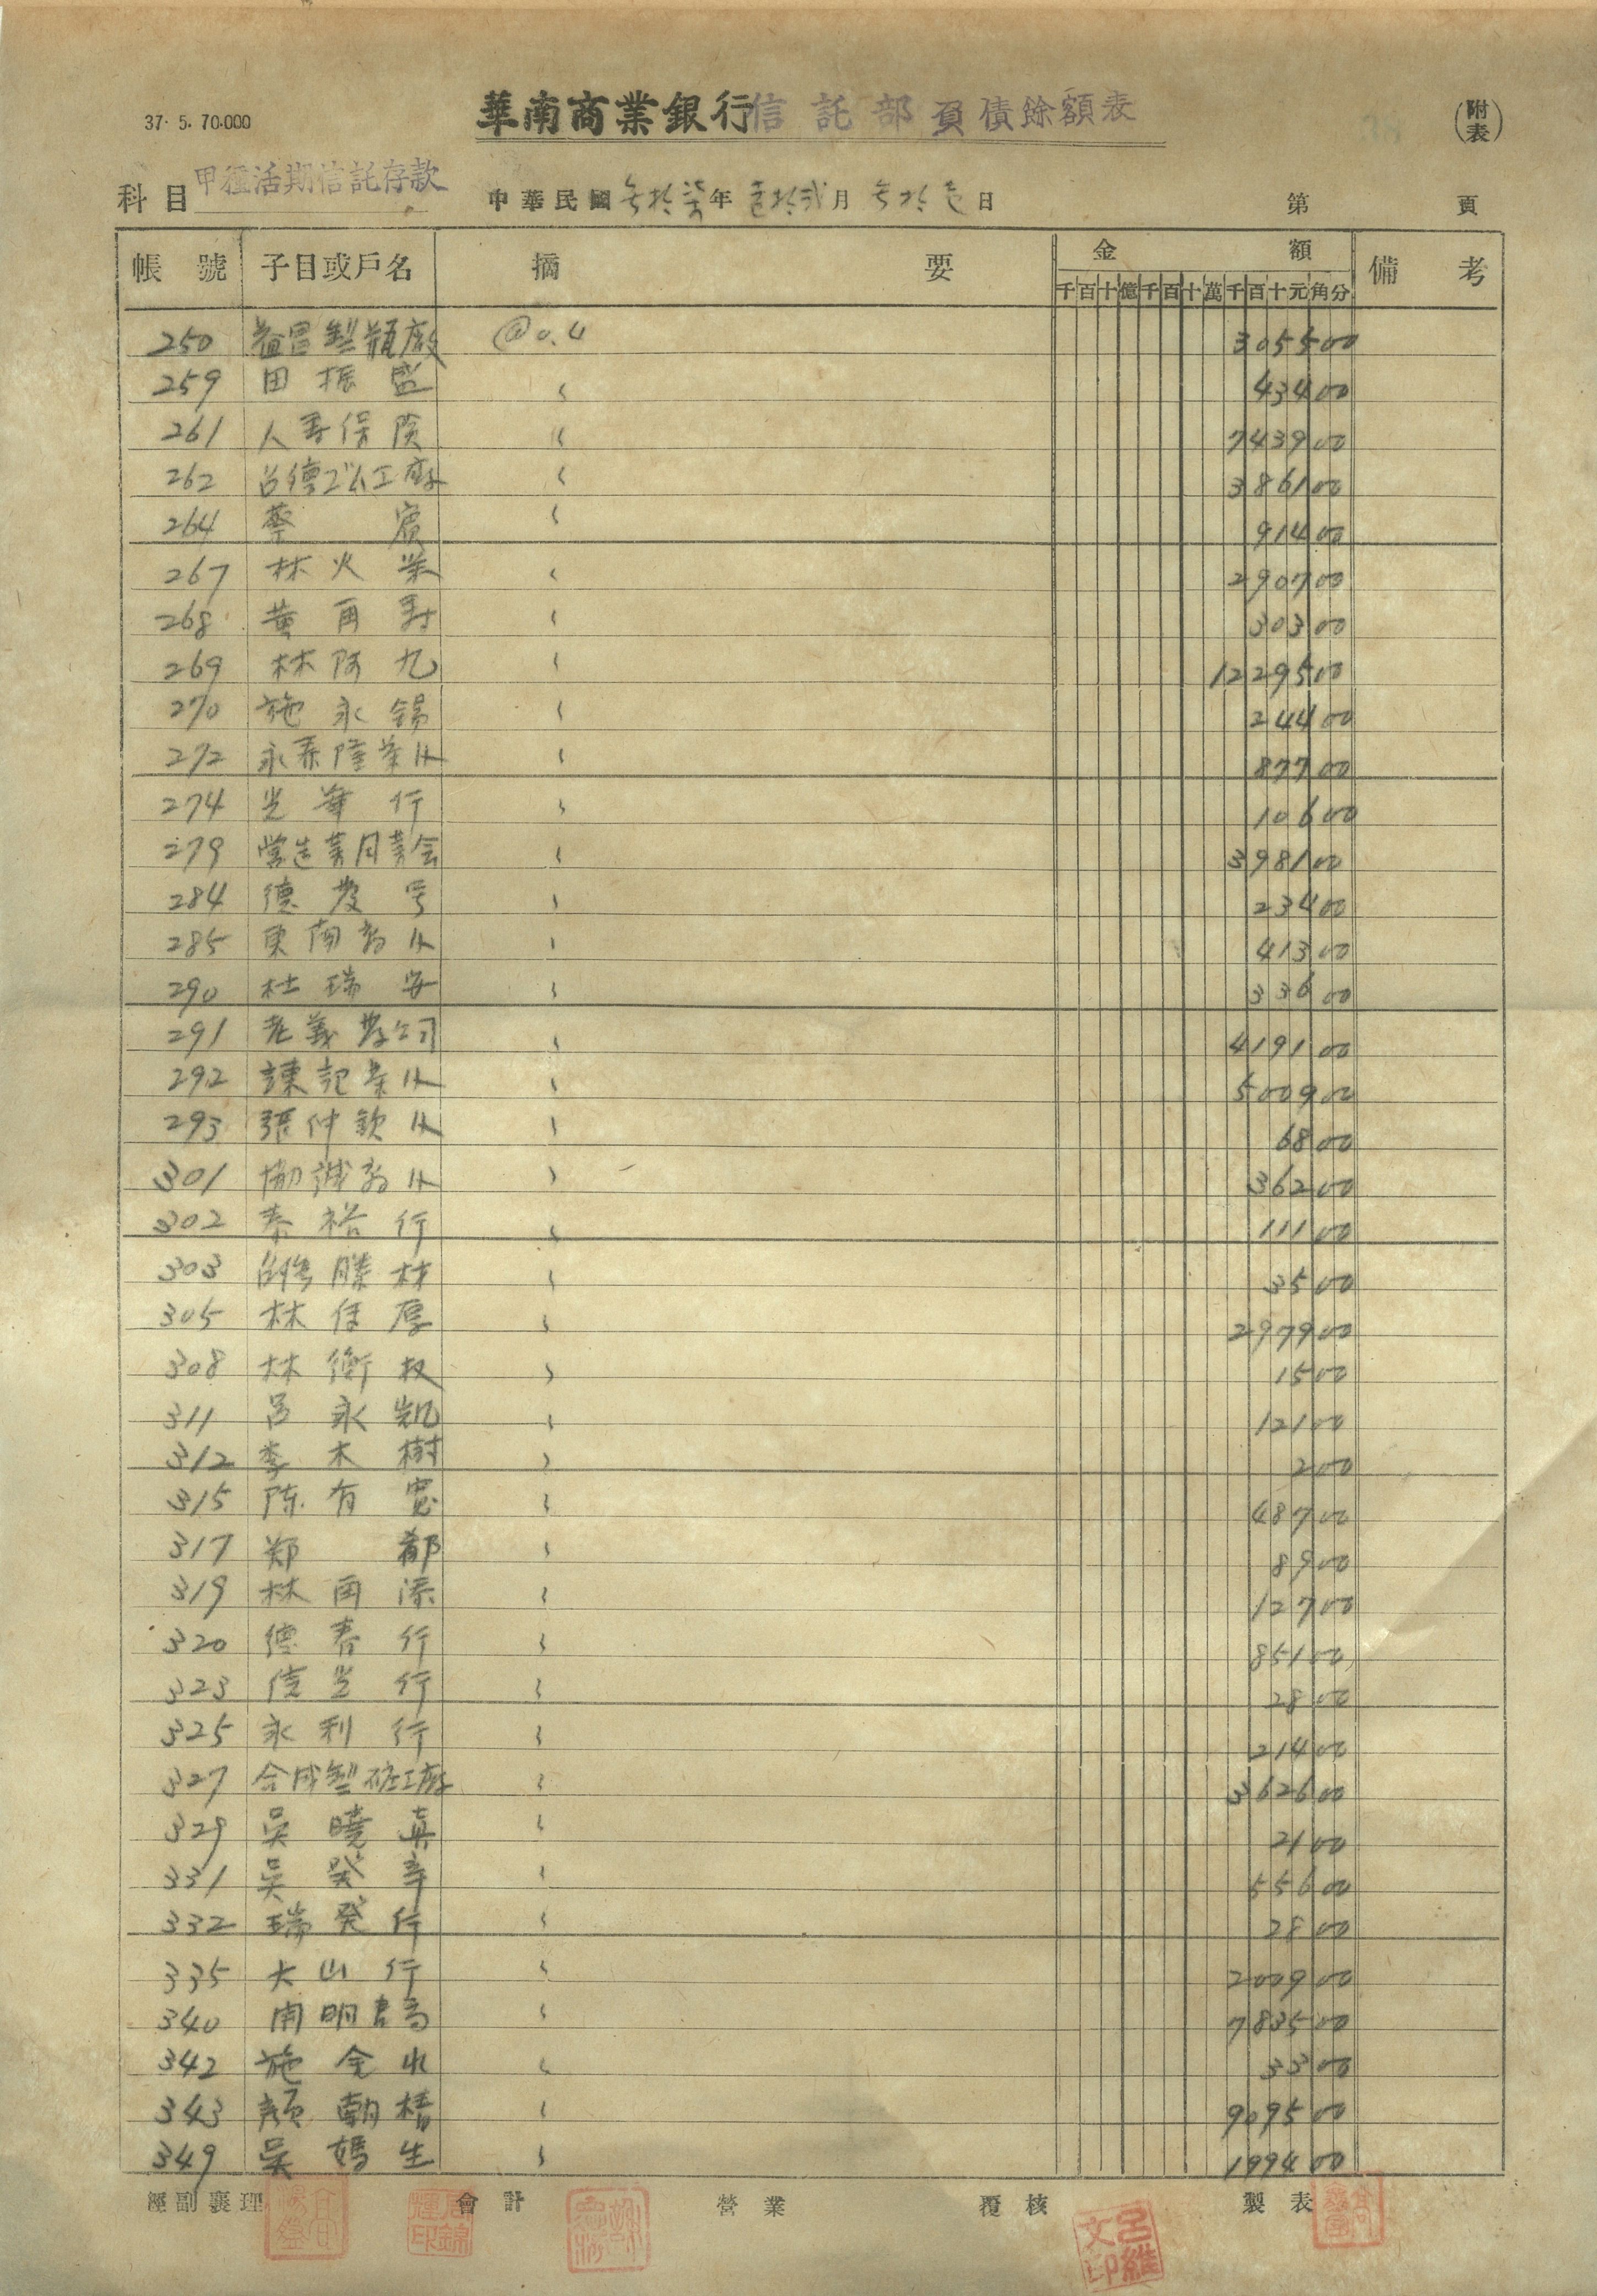 37. 5. 70.000
華南商業銀行信託部負債餘額表
(附表)
科目 甲種活期信託存款 中華民國叁拾柒年壹拾弍月叁拾壱日 第 頁
帳號 子目或戶名 摘要 金額 備考
千百十億千百十萬千百十元角分
250 益昌製瓶廠 @0.4 3055 00
259 田振盛 〃 434 00
261 人壽保險 〃 7439 00
262 〃 3861 00
264 蔡賓 〃 914 00
267 林火 〃 2907 00
268 黄再寿 〃 303 00
269 林阿九 〃 12295 00
270 施永錫 〃 244 00
272 永 隆 〃 877 00
274 光華行 〃 106 00
279 營造業同業会 〃 3981 00
284 德發号 〃 234 00
285 東南 〃 413 00
290 杜瑞安 〃 336 00
291 老義發公司 〃 4191 00
292 諫記 〃 5009 00
293 張仲欽 〃 68 00
301 協誠 〃 362 00
302 泰裕行 〃 111 00
303 勝林 〃 35 00
305 林保厚 〃 2979 00
308 林衡权 〃 15 00
311 呂永凱 〃 121 00
312 李木樹 〃 2 00
315 陈有寬 〃 487 00
317 郑郁 〃 89 00
319 林再添 〃 127 00
320 德春行 〃 851 00
323 信光行 〃 28 00
325 永利行 〃 214 00
327 合成製 工廠 〃 3626 00
329 吳曉真 〃 21 00
331 吳癸辛 〃 556 00
332 瑞発行 〃 28 00
335 大山行 〃 2009 00
340 南明書局 〃 7835 00
342 施金水 〃 33 00
343 顏朝樁 〃 9095 00
349 吳媽生 〃 1994 00
經副襄理 會計 營業 覆核 製表
呂維文印